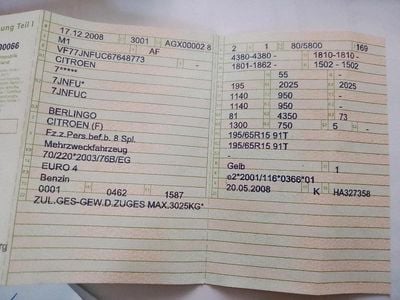 ung Teil I
00066
17.12.2008 3001 AGX00002 8
M1 AF
VF77JNFUC67648773
CITROEN
7*****
7JNFU*
7JNFUC
BERLINGO
CITROEN (F)
Fz.z.Pers.bef.b. 8 Spl.
Mehrzweckfahrzeug
70/220*2003/76B/EG
EURO 4
Benzin
0001 0462 1587
ZUL.GES-GEW.D.ZUGES MAX.3025KG*
2 1 80/5800 169
4380-4380 - 1810-1810 -
1801-1862 - 1502 - 1502
- 55 - -
195 2025 2025
1140 950 -
1140 950 -
81 4350 73
1300 750 5 -
195/65R15 91T
195/65R15 91T
-
Gelb 1
e2*2001/116*0366*01
20.05.2008 K HA327358